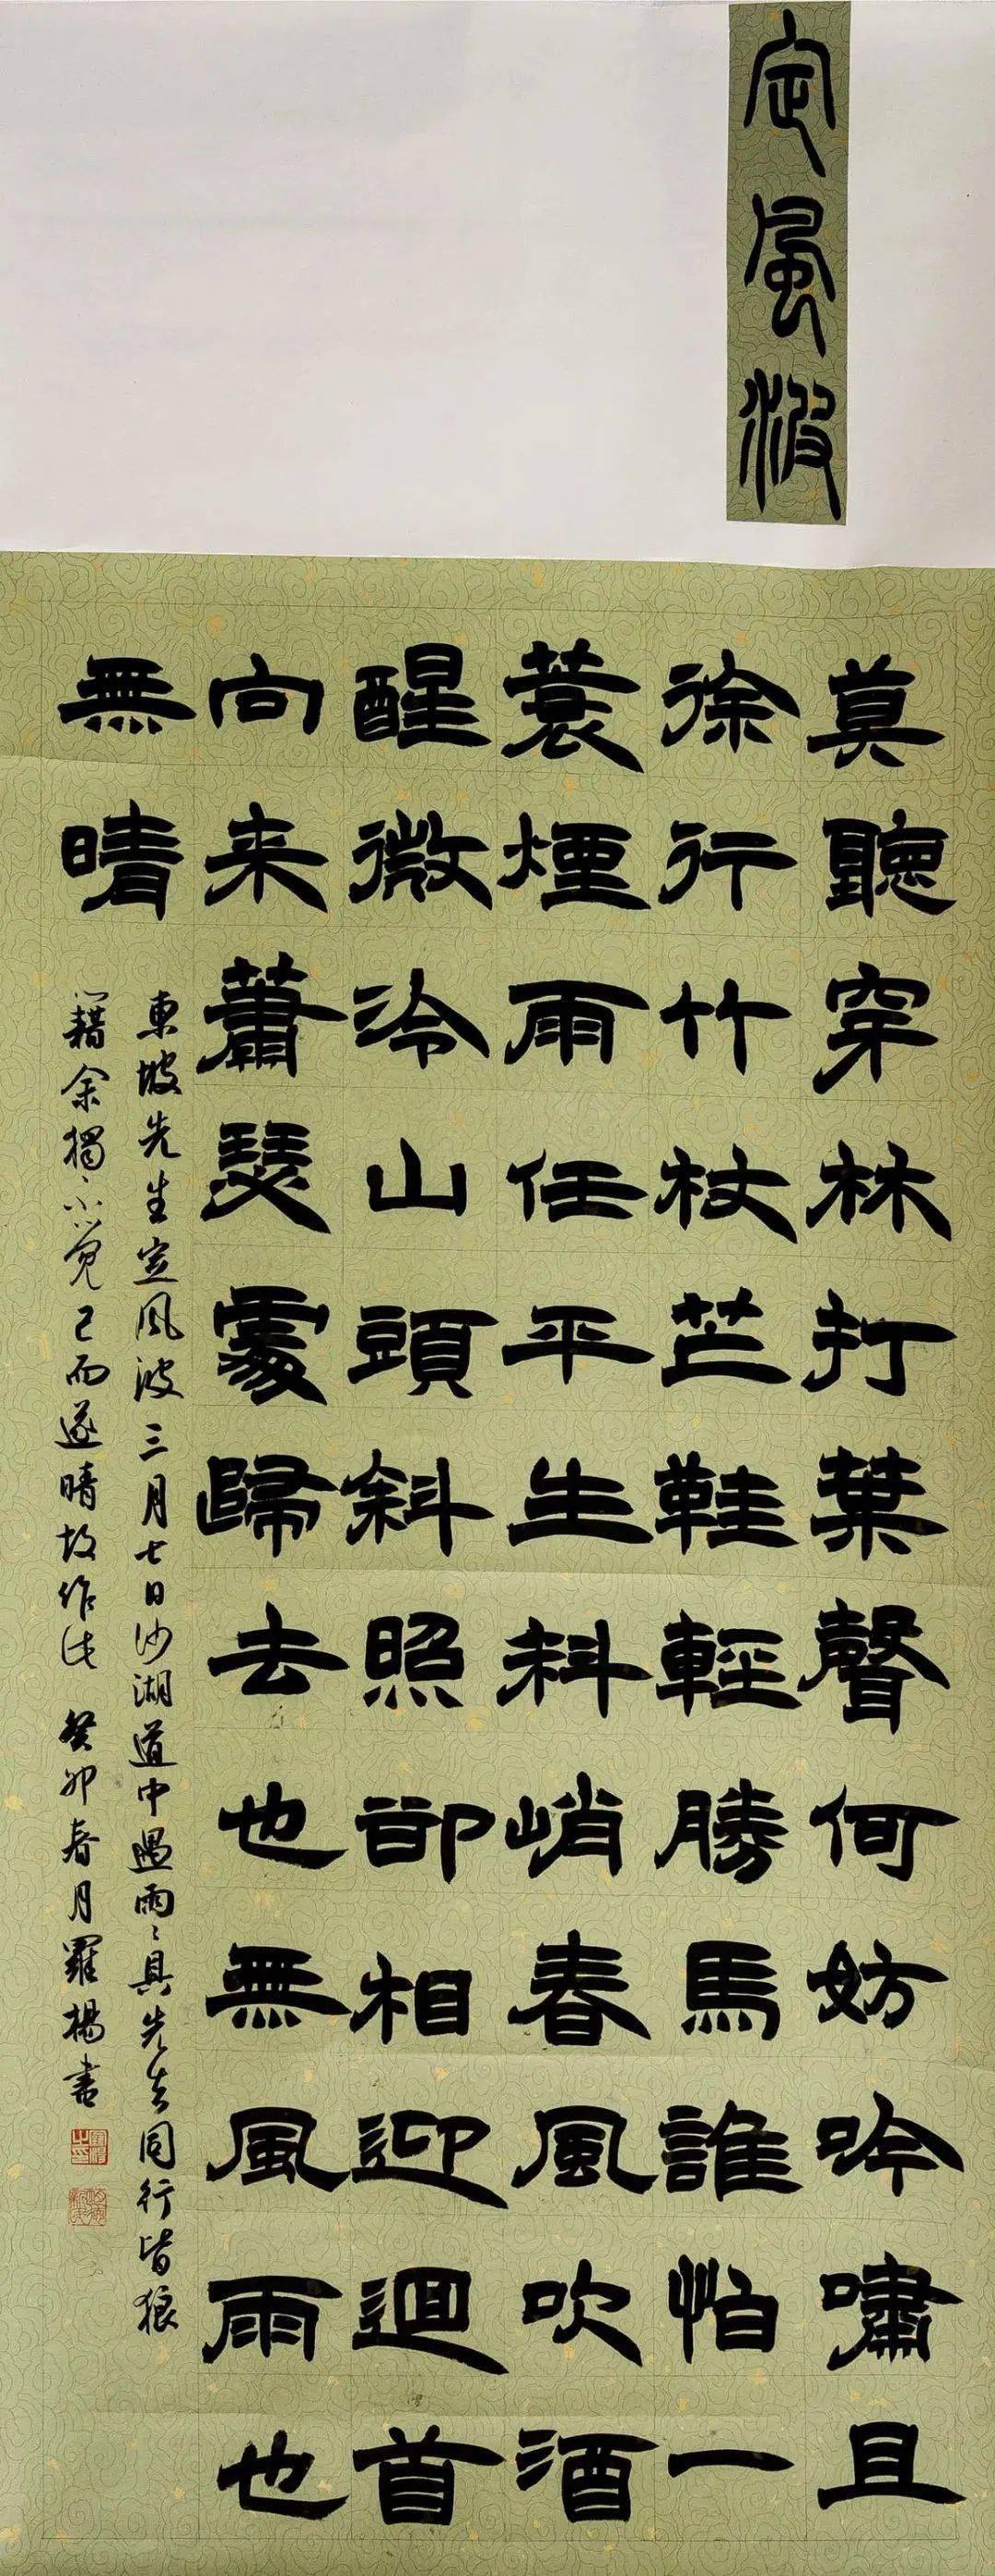 定風波
莫聽穿林打葉聲何妨吟嘯且
徐行竹杖芒鞋輕勝馬誰怕一
蓑煙雨任平生料峭春風吹酒
醒微泠山頭斜照卻相迎迴首
向来蕭瑟處歸去也無風雨也
無晴
東坡先生定風波三月七日沙湖道中遇雨〻具先去同行皆狼
籍余獨不覺已而遂晴故作此 癸卯春月羅楊書